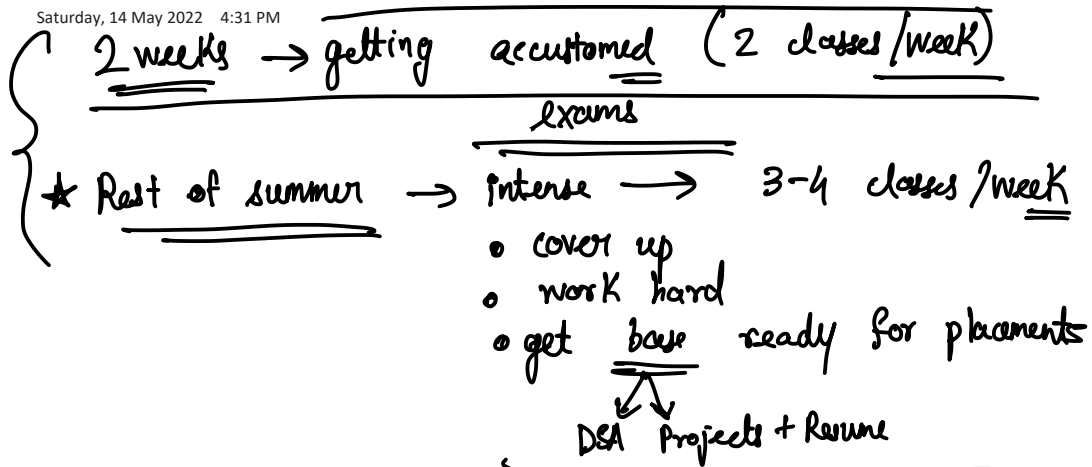 Saturday, 14 May 2022 4:31 PM
2 weeks → getting accustomed (2 classes/week)
exams
★ Rest of summer → intense → 3-4 classes/week
• cover up
• work hard
• get base ready for placements
DSA Projects + Resume